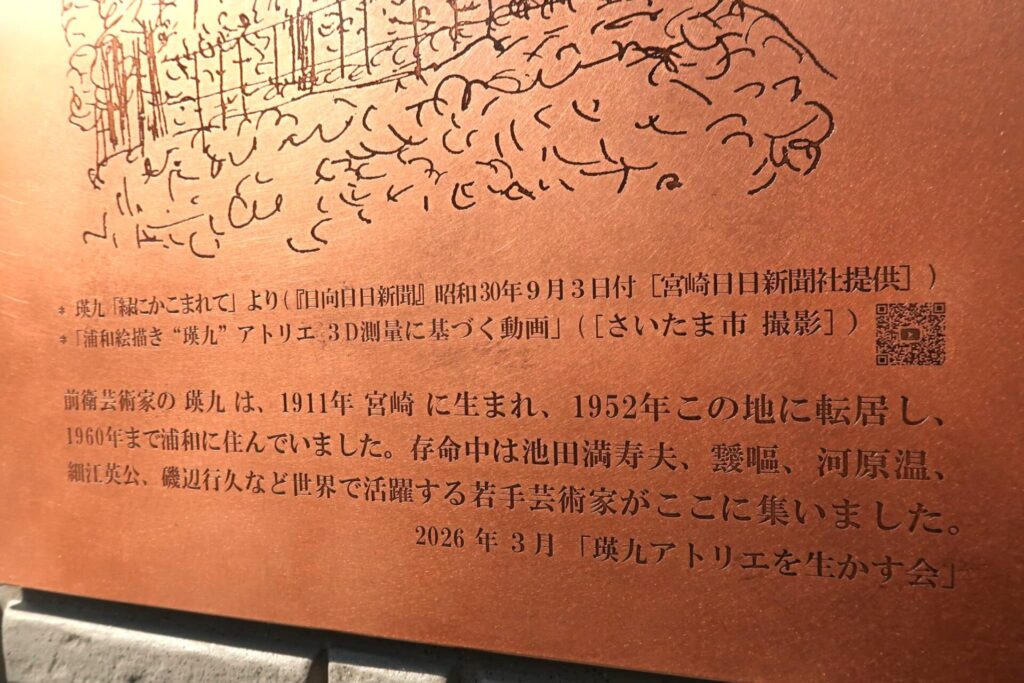 * 瑛九「緑にかこまれて」より(『日向日日新聞』昭和30年9月3日付［宮崎日日新聞社提供］)
*「浦和絵描き“瑛九”アトリエ 3D測量に基づく動画」([さいたま市 撮影])
前衛芸術家の 瑛九 は、1911年 宮崎 に生まれ、1952年この地に転居し、
1960年まで浦和に住んでいました。存命中は池田満寿夫、靉嘔、河原温、
細江英公、磯辺行久など世界で活躍する若手芸術家がここに集いました。
2026 年 3 月 「瑛九アトリエを生かす会」